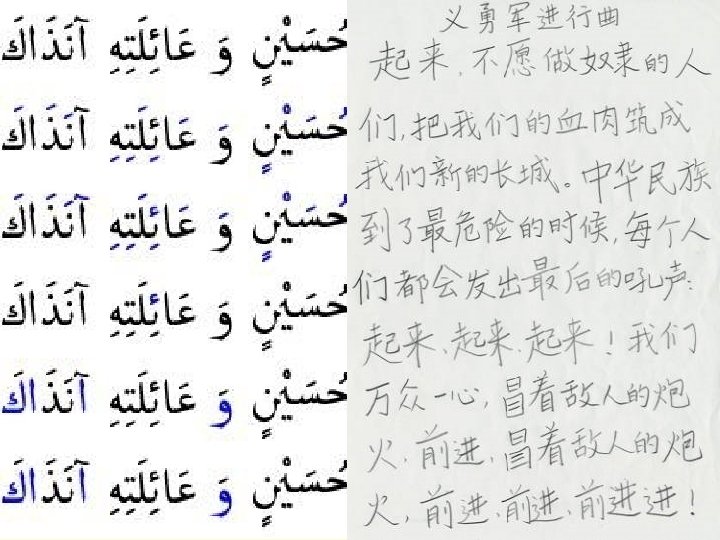 حُسَيْنٍ وَ عَائِلَتِهِ آنَذَاكَ
حُسَيْنٍ وَ عَائِلَتِهِ آنَذَاكَ
حُسَيْنٍ وَ عَائِلَتِهِ آنَذَاكَ
حُسَيْنٍ وَ عَائِلَتِهِ آنَذَاكَ
حُسَيْنٍ وَ عَائِلَتِهِ آنَذَاكَ
حُسَيْنٍ وَ عَائِلَتِهِ آنَذَاكَ
义勇军进行曲
起来,不愿做奴隶的人
们,把我们的血肉筑成
我们新的长城。中华民族
到了最危险的时候,每个人
们都会发出最后的吼声:
起来、起来、起来!我们
万众一心,冒着敌人的炮
火、前进,冒着敌人的炮
火,前进、前进、前进进!